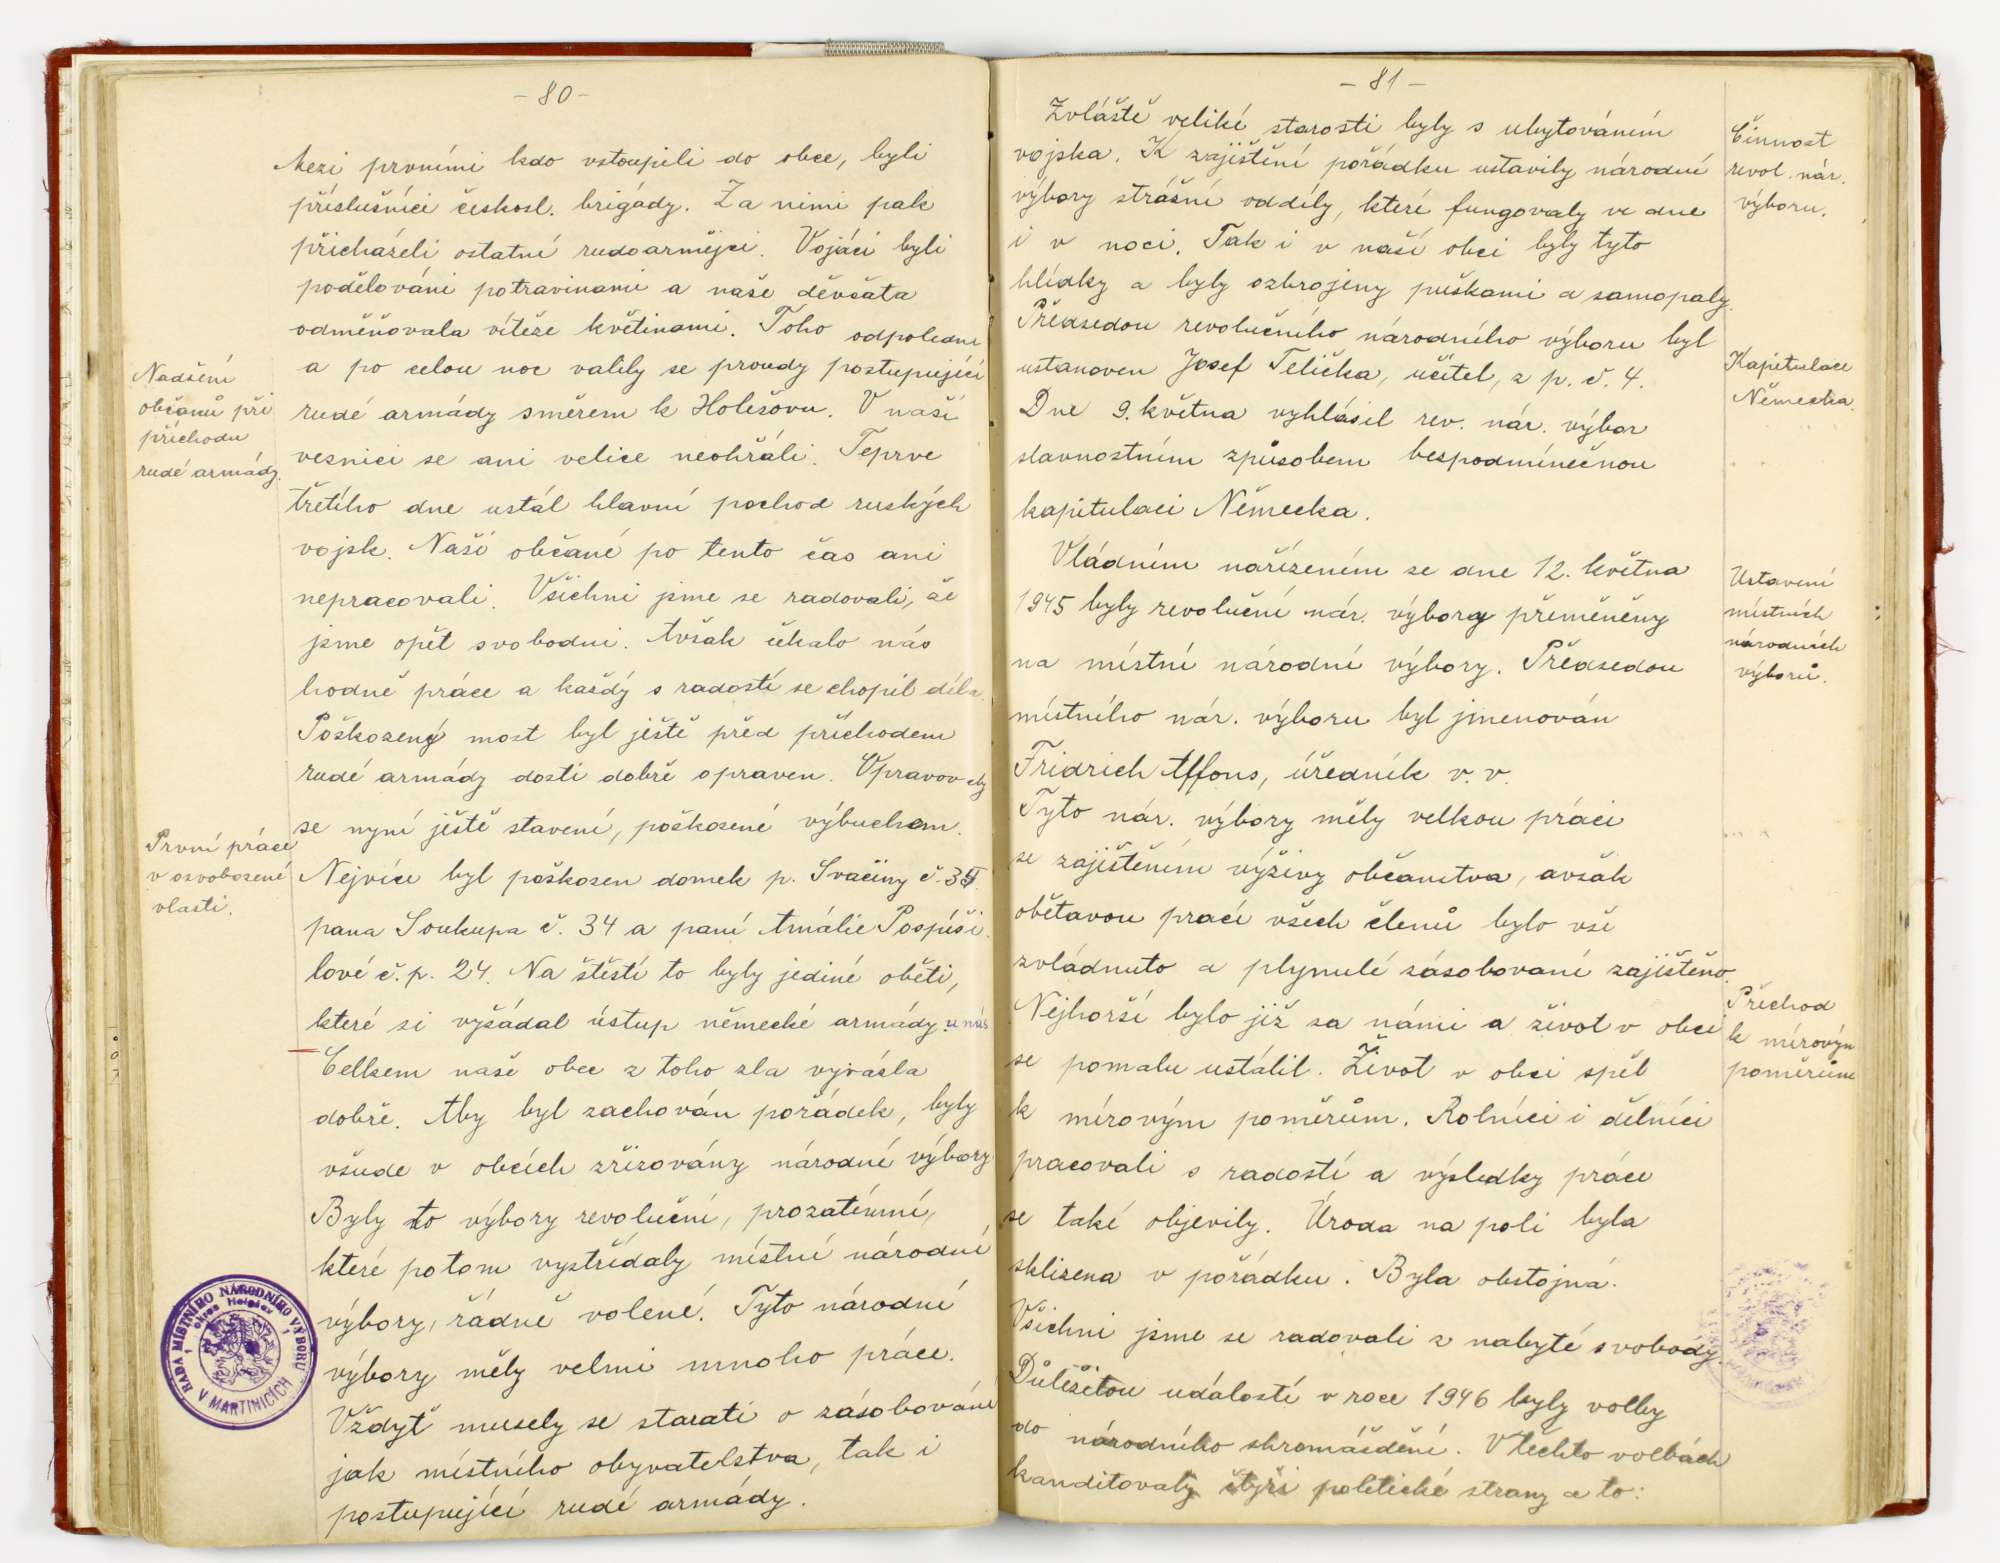 - 80 -
Mezi prvními kdo vstoupili do obce, byli
příslušníci českosl. brigády. Za nimi pak
přicházeli ostatní rudoarmějci. Vojáci byli
podělováni potravinami a naše děvčata
odměňovala vítěze květinami. Toho odpoledne
a po celou noc valily se proudy postupující
rudé armády směrem k Holešovu. V naší
vesnici se ani velice neohřáli. Teprve
třetího dne ustál hlavní pochod ruských
vojsk. Naši občané po tento čas ani
nepracovali. Všichni jsme se radovali, že
jsme opět svobodni. Avšak čekalo nás
hodně práce a každý s radostí se chopil díla.
Poškozený most byl ještě před příchodem
rudé armády dosti dobře opraven. Opravovaly
se nyní ještě stavení, poškozené výbuchem.
Nejvíce byl poškozen domek p. Svačiny č. 35.
pana Soukupa č. 34 a paní Amálie Pospíši-
lové č.p. 24. Na štěstí to byly jediné oběti,
které si vyžádal ústup německé armády u nás
Celkem naše obec z toho zla vyvázla
dobře. Aby byl zachován pořádek, byly
všude v obcích zřizovány národní výbory
Byly to výbory revoluční, prozatímní,
které potom vystřídaly místní národní
výbory, řádně volené. Tyto národní
výbory měly velmi mnoho práce.
Vždyť musely se starati o zásobování
jak místního obyvatelstva, tak i
postupující rudé armády.
Nadšení
občanů při
příchodu
rudé armády.
První práce
v osvobozené
vlasti.
RADA MÍSTNÍHO NÁRODNÍHO VÝBORU
okres Holešov
V MARTINICÍCH
- 81 -
Zvláště veliké starosti byly s ubytováním
vojska. K zajištění pořádku ustavily národní
výbory strážní oddíly, které fungovaly ve dne
i v noci. Tak i v naší obci byly tyto
hlídky a byly ozbrojeny puškami a samopaly.
Předsedou revolučního národního výboru byl
ustanoven Josef Telička, učitel, z p. č. 4.
Dne 9. května vyhlásil rev. nár. výbor
slavnostním způsobem bezpodmínečnou
kapitulaci Německa.
Vládním nařízením ze dne 12. května
1945 byly revoluční nár. výbory přeměněny
na místní národní výbory. Předsedou
místního nár. výboru byl jmenován
Fridrich Alfons, úředník v. v.
Tyto nár. výbory měly velkou práci
se zajištěním výživy občanstva, avšak
obětavou prací všech členů bylo vše
zvládnuto a plynulé zásobování zajištěno.
Nejhorší bylo již za námi a život v obci
se pomalu ustálil. Život v obci spěl
k mírovým poměrům. Rolníci i dělníci
pracovali s radostí a výsledky práce
se také objevily. Úroda na poli byla
sklizena v pořádku. Byla obstojná.
Všichni jsme se radovali z nabyté svobody.
Důležitou událostí v roce 1946 byly volby
do národního shromáždění. V těchto volbách
kanditovaly čtyři politické strany a to:
Činnost
revol. nár.
výboru.
Kapitulace
Německa.
Ustavení
místních
národních
výborů.
Příchod
k mírovým
poměrům